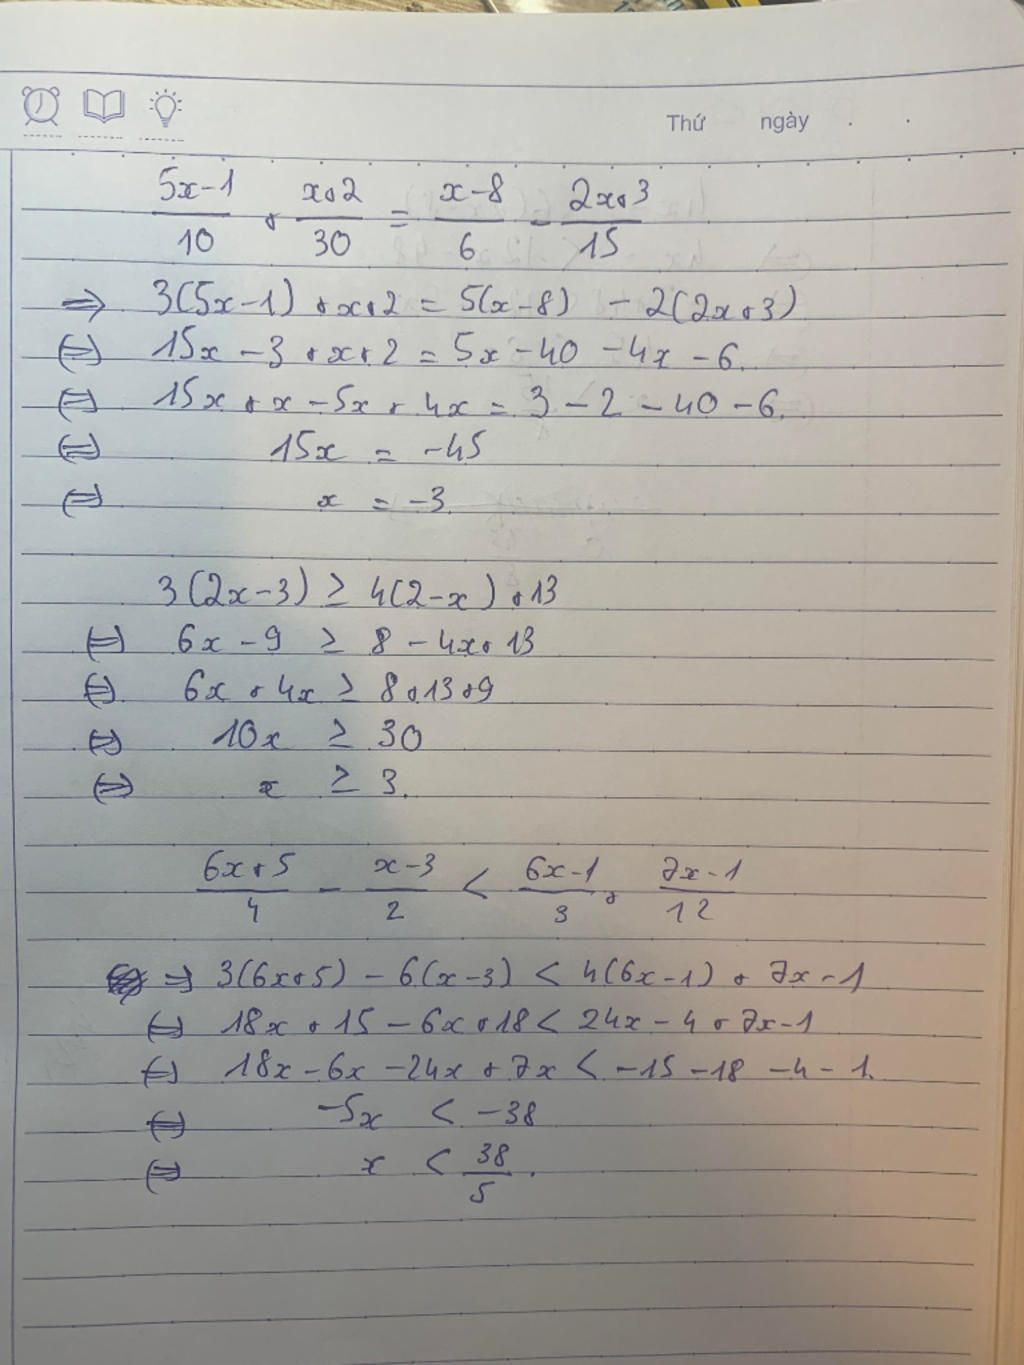 Thứ ngày . .
(5x-1)/10 + (x+2)/30 = (x-8)/6 - (2x+3)/15
⇒ 3(5x-1) + x+2 = 5(x-8) - 2(2x+3)
⇔ 15x - 3 + x + 2 = 5x - 40 - 4x - 6.
⇔ 15x + x - 5x + 4x = 3 - 2 - 40 - 6.
⇔ 15x = -45
⇔ x = -3.
3(2x-3) ≥ 4(2-x) + 13
⇔ 6x - 9 ≥ 8 - 4x + 13
⇔ 6x + 4x ≥ 8 + 13 + 9
⇔ 10x ≥ 30
⇔ x ≥ 3.
(6x+5)/4 - (x-3)/2 < (6x-1)/3 + (7x-1)/12
⇒ 3(6x+5) - 6(x-3) < 4(6x-1) + 7x - 1
⇔ 18x + 15 - 6x + 18 < 24x - 4 + 7x - 1
⇔ 18x - 6x - 24x + 7x < -15 - 18 - 4 - 1.
⇔ -5x < -38
⇔ x < 38/5.